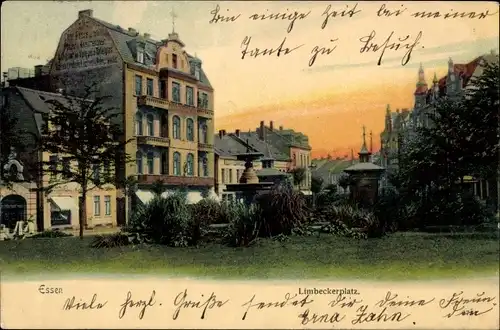 Bin einige Zeit bei meiner
Tante zu Besuch.
Essen
Limbeckerplatz.
Viele herzl. Grüße sendet Dir, deine Freun-
din.
Erna Zahn.